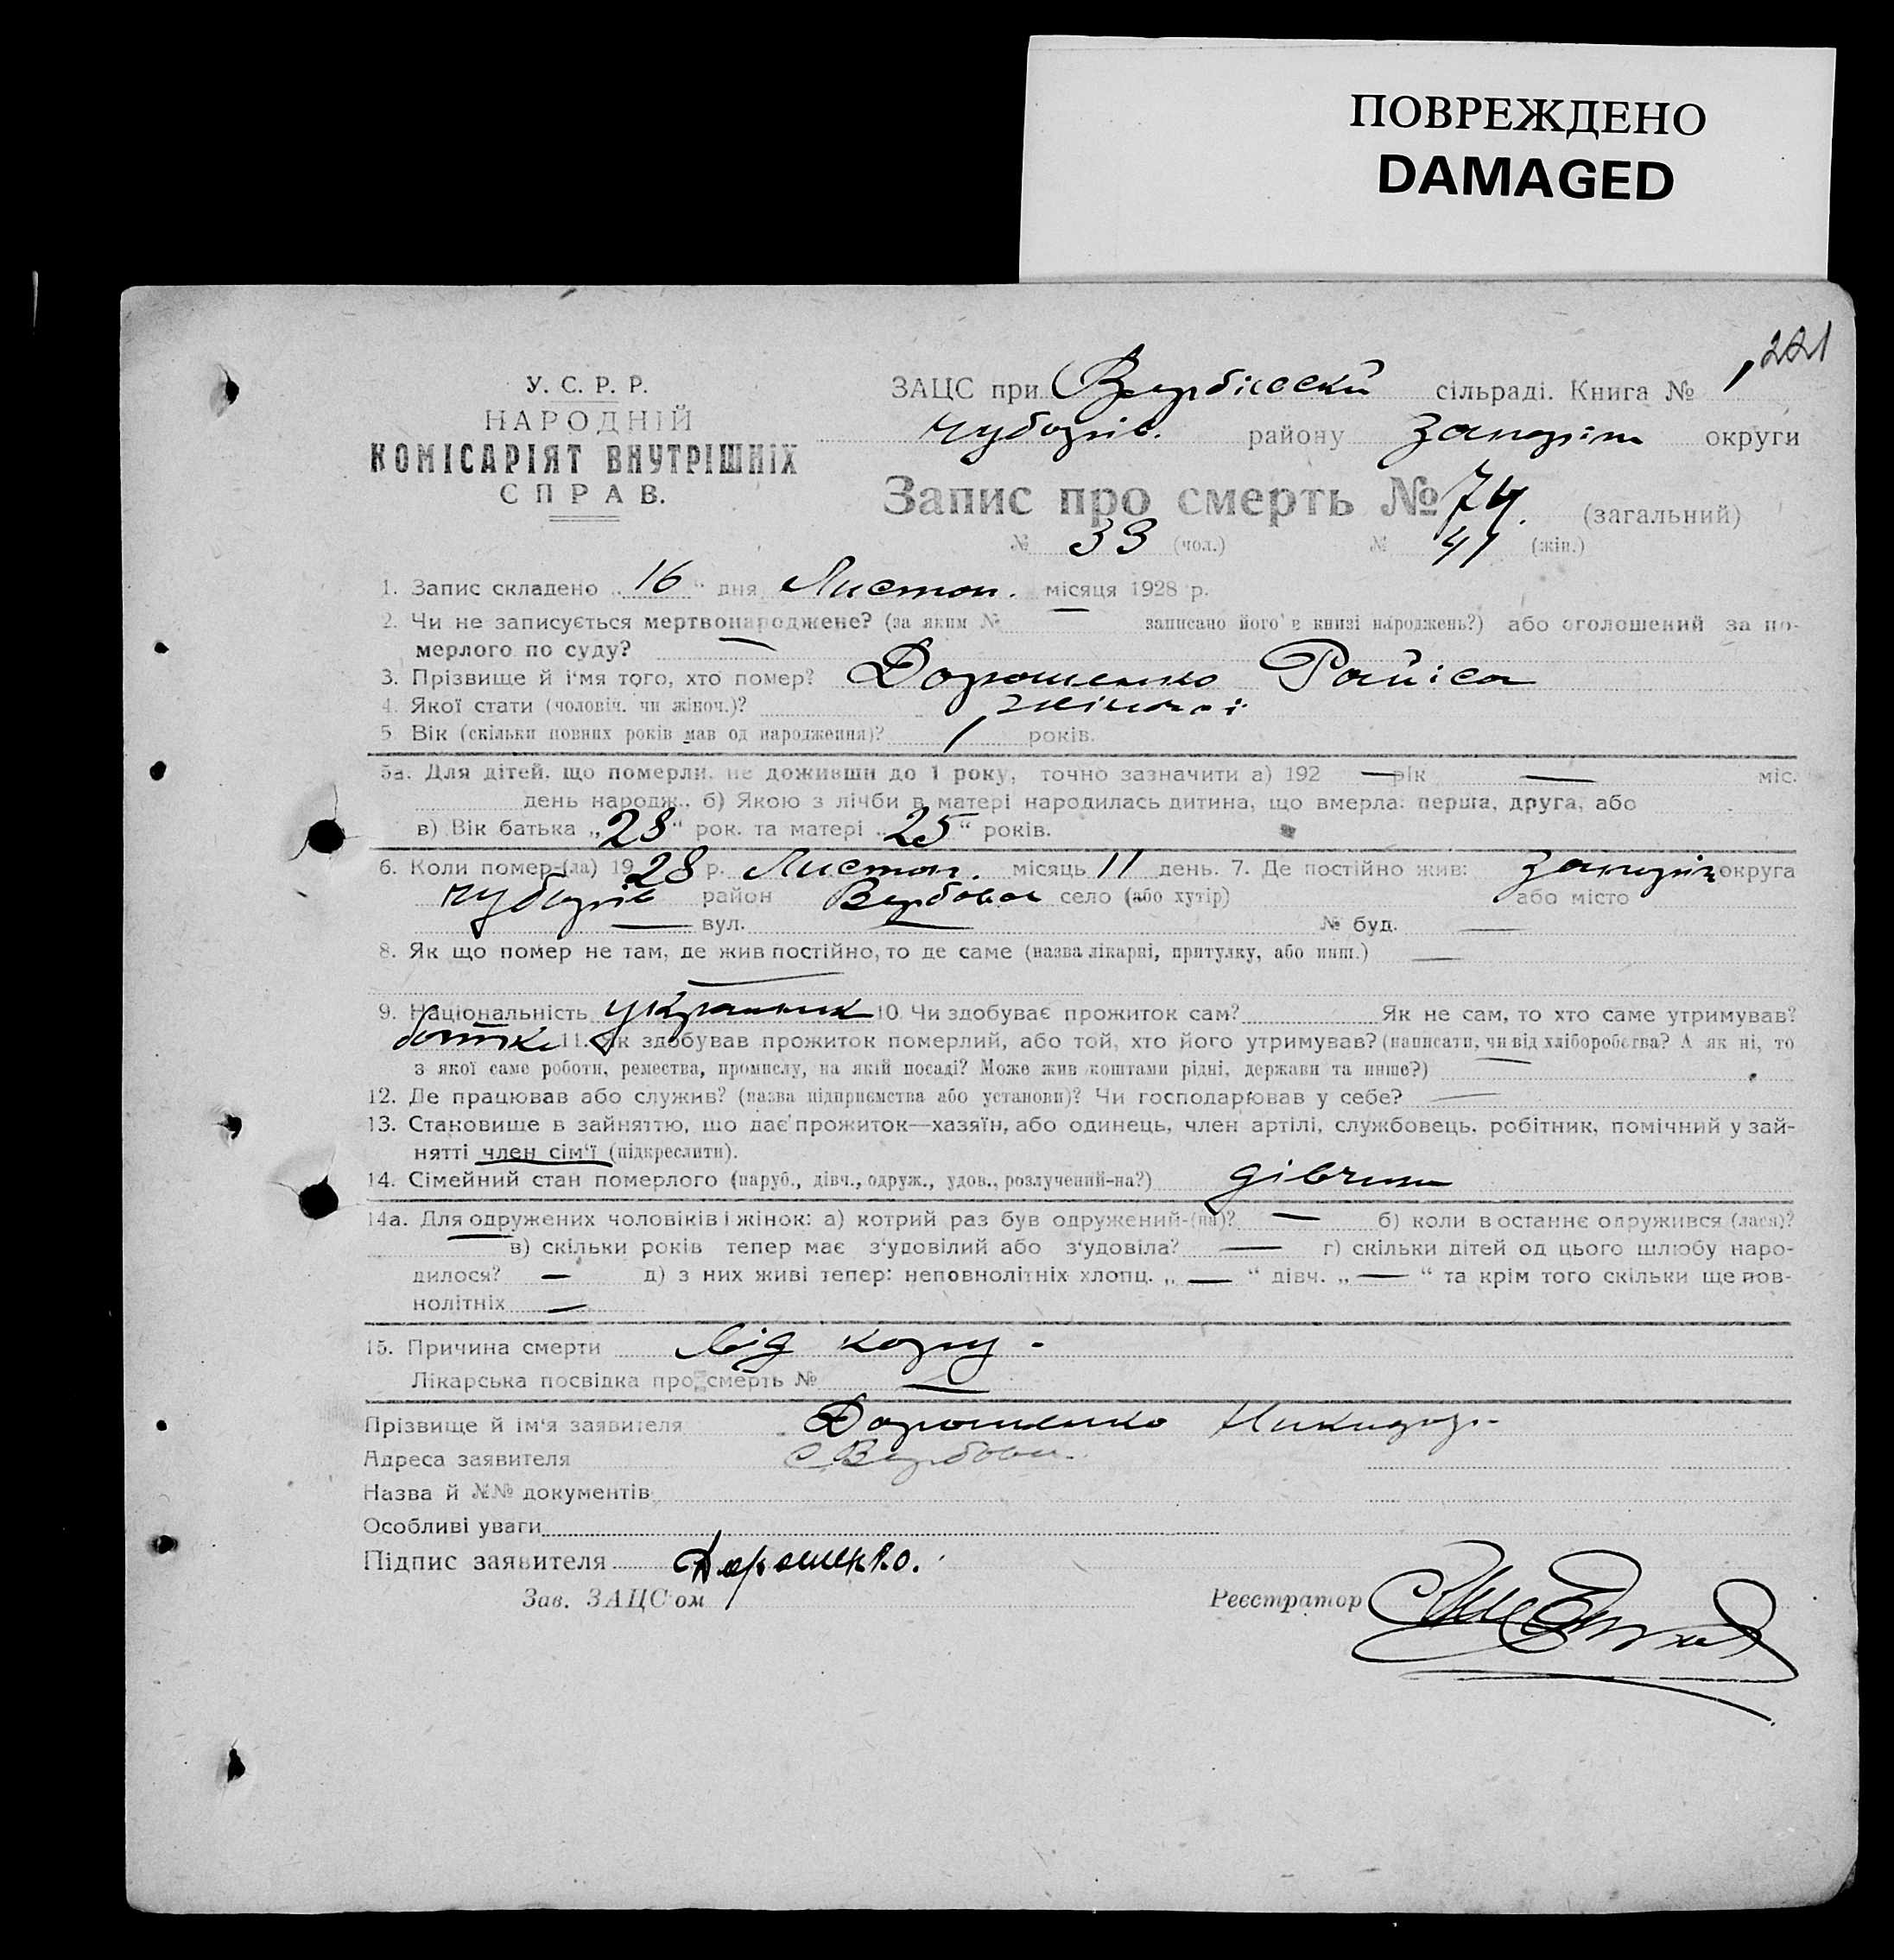 ПОВРЕЖДЕНО
DAMAGED
221
У. С. Р. Р.
НАРОДНІЙ
КОМІСАРІЯТ ВНУТРІШНІХ
СПРАВ.
ЗАЦС при Вербівській сільраді. Книга № 1
Чубарів. району Запоріж округи
Запис про смерть № 74. (загальний)
№ 33 (чол.) № 41 (жін.)
1. Запис складено „16“ дня Листоп. місяця 1928 р.
2. Чи не записується мертвонароджене? (за яким № — записано його в книзі народжень?) або оголошений за по-
мерлого по суду? —
3. Прізвище й і'мя того, хто помер? Дорошенко Раїса
4. Якої стати (чоловіч. чи жіноч.)? жіночої
5. Вік (скільки повних років мав од народження)? 1 років.
5а. Для дітей, що померли, не доживши до 1 року, точно зазначити а) 192 — рік — міс.
день народж., б) Якою з лічби в матері народилась дитина, що вмерла: перша, друга, або
в) Вік батька „28“ рок. та матері „25“ років.
6. Коли помер-(ла) 1928 р. Листоп. місяць 11 день. 7. Де постійно жив: Запоріж округа
Чубарів район Вербова село (або хутір) або місто
— вул. — № буд. —
8. Як що помер не там, де жив постійно, то де саме (назва лікарні, притулку, або инш.) —
—
9. Національність Україник 10. Чи здобуває прожиток сам? Як не сам, то хто саме утримував?
батько 11. Як здобував прожиток померлий, або той, хто його утримував? (написати, чи від хліборобства? А як ні, то
з якої саме роботи, ремества, промислу, на якій посаді? Може жив коштами рідні, держави та инше?) —
12. Де працював або служив? (назва підприємства або установи)? Чи господарював у себе? —
13. Становище в зайняттю, що дає прожиток—хазяїн, або одинець, член артілі, службовець, робітник, помічний у зай-
нятті член сім'ї (підкреслити).
14. Сімейний стан померлого (паруб., дівч., одруж., удов., розлучений-на?) дівчина
14а. Для одружених чоловіків і жінок: а) котрий раз був одружений-(на)? — б) коли востаннє одружився (лася)?
в) скільки років тепер має з'удовілий або з'удовіла? — г) скільки дітей од цього шлюбу наро-
дилося? — д) з них живі тепер: неповнолітніх хлопц. „ — “ дівч. „ — “ та крім того скільки ще пов-
нолітніх —
15. Причина смерти від кору -
Лікарська посвідка про смерть № —
Прізвище й ім'я заявителя Дорошенко
Адреса заявителя С. Вербова
Назва й №№ документів
Особливі уваги
Підпис заявителя Дорошенко.
Зав. ЗАЦС'ом Реєстратор